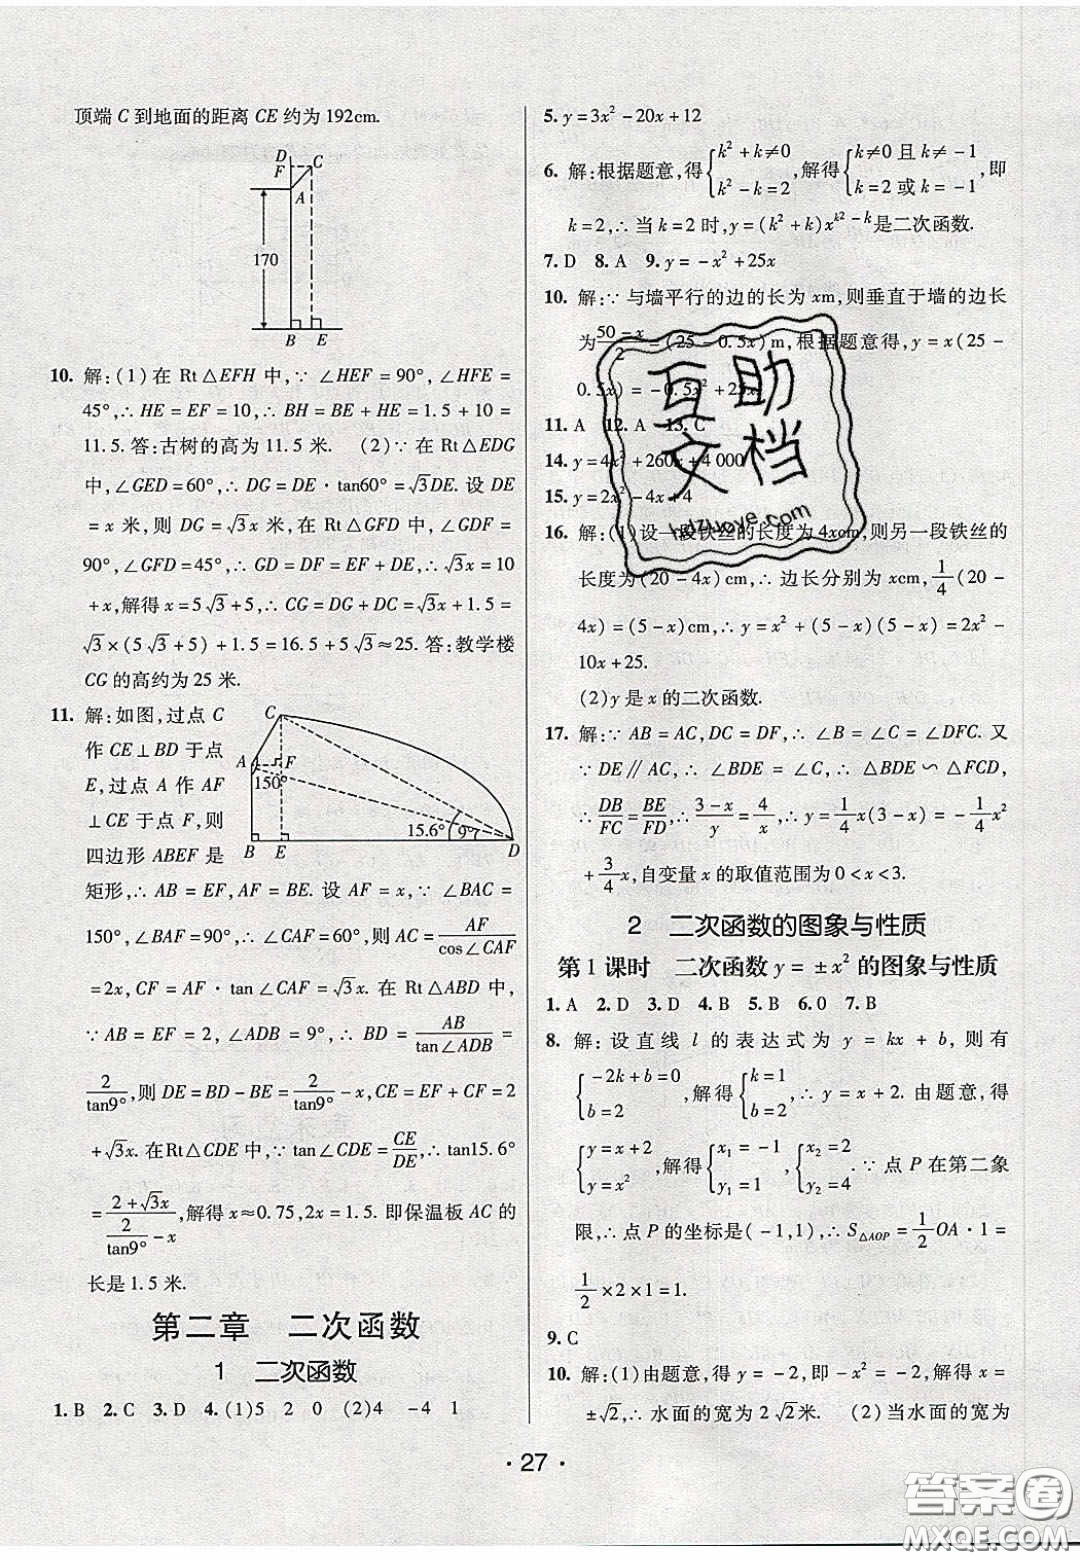 顶端 C 到地面的距离 CE 约为 192cm.
D
F
C
A
170
B E
10. 解:(1)在 Rt△EFH 中,∵ ∠HEF = 90°,∠HFE =
45°,∴ HE = EF = 10,∴ BH = BE + HE = 1.5 + 10 =
11.5. 答:古树的高为 11.5 米. (2)∵ 在 Rt△EDG
中,∠GED = 60°,∴ DG = DE · tan60° = √3DE. 设 DE
= x 米,则 DG = √3x 米,在 Rt△GFD 中,∠GDF =
90°,∠GFD = 45°,∴ GD = DF = EF + DE,∴ √3x = 10
+ x,解得 x = 5√3 + 5,∴ CG = DG + DC = √3x + 1.5 =
√3 × (5√3 + 5) + 1.5 = 16.5 + 5√3 ≈ 25. 答:教学楼
CG 的高约为 25 米.
11. 解:如图,过点 C
作 CE⊥BD 于点
E,过点 A 作 AF
⊥CE 于点 F,则
四边形 ABEF 是
C
A F
150°
15.6° 9°
B E D
矩形,∴ AB = EF,AF = BE. 设 AF = x,∵ ∠BAC =
150°,∠BAF = 90°,∴ ∠CAF = 60°,则 AC = AF/cos∠CAF
= 2x,CF = AF · tan∠CAF = √3x. 在 Rt△ABD 中,
∵ AB = EF = 2,∠ADB = 9°,∴ BD = AB/tan∠ADB =
2/tan9°,则 DE = BD − BE = 2/tan9° − x,CE = EF + CF = 2
+ √3x. 在Rt△CDE 中,∵ tan∠CDE = CE/DE,∴ tan15.6°
= (2 + √3x)/(2/tan9° − x),解得 x ≈ 0.75,2x = 1.5. 即保温板 AC 的
长是 1.5 米.
第二章 二次函数
1 二次函数
1. B 2. C 3. D 4. (1)5 2 0 (2)4 −4 1
5. y = 3x² − 20x + 12
6. 解:根据题意,得{k² + k ≠ 0 k² − k = 2,解得{k ≠ 0 且 k ≠ −1 k = 2 或 k = −1,即
k = 2,∴ 当 k = 2 时,y = (k² + k)x^(k² − k)是二次函数.
7. D 8. A 9. y = −x² + 25x
10. 解:∵ 与墙平行的边的长为 xm,则垂直于墙的边长
为 (50 − x)/2 = (25 − 0.5x)m,根据题意得,y = x(25 −
0.5x) = −0.5x² + 25x
11. A 12. A 13. C
14. y = 4x² + 260x + 4 000
15. y = 2x² − 4x + 4
16. 解:(1)设一段铁丝的长度为 4xcm,则另一段铁丝的
长度为(20 − 4x)cm,∴ 边长分别为 xcm,1/4(20 −
4x) = (5 − x)cm,∴ y = x² + (5 − x)(5 − x) = 2x² −
10x + 25.
(2)y 是 x 的二次函数.
17. 解:∵ AB = AC,DC = DF,∴ ∠B = ∠C = ∠DFC. 又
∵ DE∥AC,∴ ∠BDE = ∠C,∴ △BDE∽△FCD,
∴ DB/FC = BE/FD,∴ (3 − x)/y = 4/x,∴ y = 1/4x(3 − x) = −1/4x²
+ 3/4x,自变量 x 的取值范围为 0 < x < 3.
2 二次函数的图象与性质
第 1 课时 二次函数 y = ±x² 的图象与性质
1. A 2. D 3. D 4. B 5. B 6. 0 7. B
8. 解:设直线 l 的表达式为 y = kx + b,则有
{−2k + b = 0 b = 2,解得{k = 1 b = 2,∴ y = x + 2. 由题意,得
{y = x + 2 y = x²,解得{x₁ = −1 y₁ = 1,{x₂ = 2 y₂ = 4. ∵ 点 P 在第二象
限,∴ 点 P 的坐标是(−1,1),∴ S△AOP = 1/2OA · 1 =
1/2 × 2 × 1 = 1.
9. C
10. 解:(1)由题意,得 y = −2,即 −x² = −2,解得 x =
±√2,∴ 水面的宽为 2√2米. (2)当水面的宽为
· 27 ·
互助
文档
hdzuoye.com
答案圈
MXQE.COM